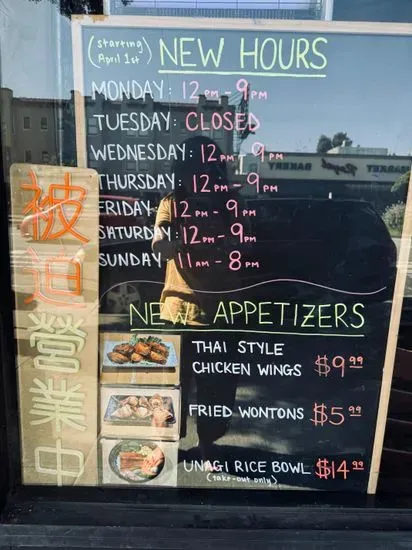 (starting April 1st) NEW HOURS
MONDAY: 12 PM - 9 PM
TUESDAY: CLOSED
WEDNESDAY: 12 PM - 9 PM
THURSDAY: 12 PM - 9 PM
FRIDAY: 12 PM - 9 PM
SATURDAY: 12 PM - 9 PM
SUNDAY: 11 AM - 8 PM
被迫營業中
NEW APPETIZERS
THAI STYLE
CHICKEN WINGS $9.99
FRIED WONTONS $5.99
UNAGI RICE BOWL $14.99
(take-out only)
Royal MARKET